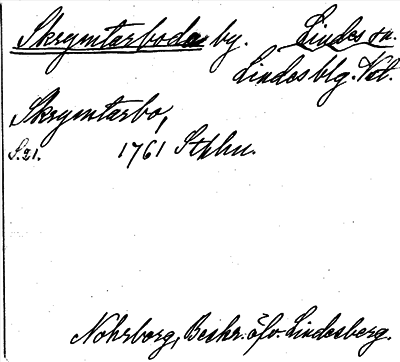 Skrymtarboda by. Lindes sn.
Lindesblg. Vstl.
Skrymtarbo,
S. 21. 1761 Sthlm.
Nohrborg, Beskr. öfv. Lindesberg.